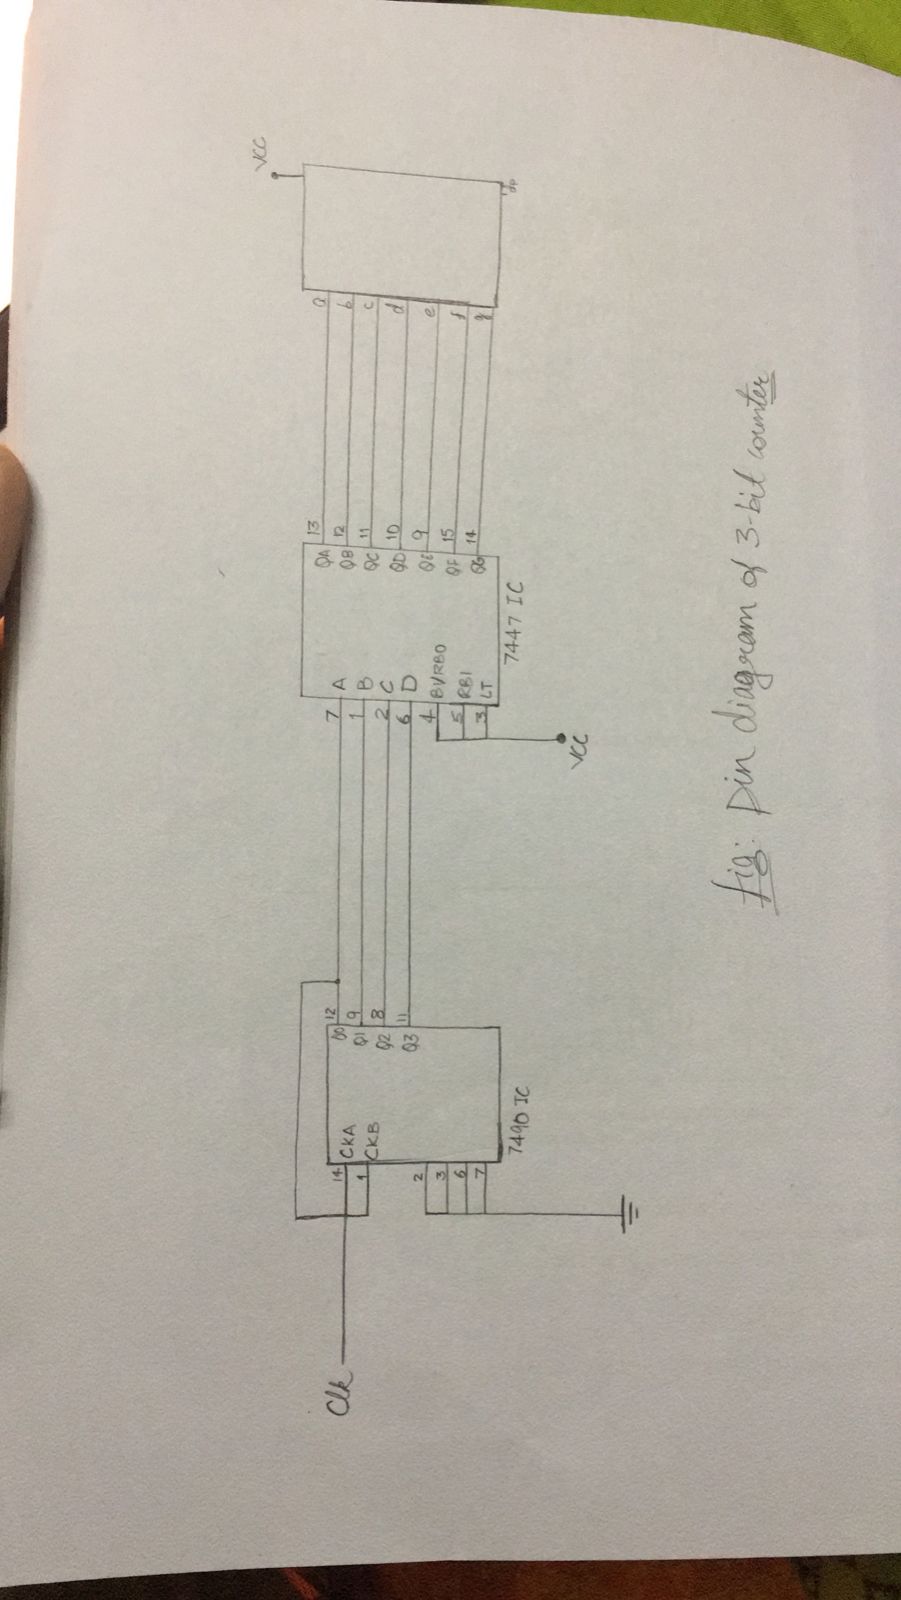 VCC
Clk
14 CKA
1 CKB
2
3
6
7
Q0 12
Q1 9
Q2 8
Q3 11
7490 IC
7 A
1 B
2 C
6 D
4 BI/RBO
5 RBI
3 LT
VCC
QA 13
QB 12
QC 11
QD 10
QE 9
QF 15
QG 14
7447 IC
a
b
c
d
e
f
g
dp
fig: Pin diagram of 3-bit counter